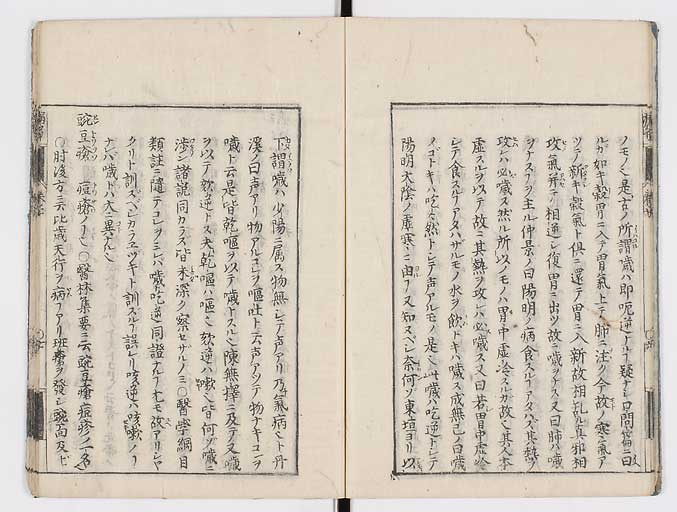 ノモノ也是古ノ所謂噦ハ即呃逆ナル疑ナシ口問篇ニ曰
ルカ如キ穀胃ニ入テ胃氣上テ肺ニ注ク今故ノ寒氣ア
ツテ新キ穀氣ト俱ニ還テ胃ニ入新故相乱レ真邪相
攻氣并テ相逆シ復胃ニ出ツ故ニ噦ヲナス又曰肺ハ噦
ヲナスコヲ主ル仲景ノ曰陽明ノ病食スルヿアタハス其熱ヲ
攻レハ必噦ス然ル所以ノモノハ胃中虚冷スルカ故也其人本
虚スルヲ以テ故ニ其熱ヲ攻レハ必噦ス又曰若胃中虚冷
シテ食スルヿアタハザルモノ水ヲ飲トキハ噦ス成無己ノ曰噦
ノゴトキハ吃々然トシテ声アルモノ是也此噦ハ吃逆トシテ
陽明大陰ノ虚寒ニ由ルヿ又知スベシ奈何ソ東垣ヨリ以
下謂噦ハ少陽ニ属ス物無シテ声アリ乃氣病也ト丹
溪ノ曰声アリ物アルコレヲ嘔吐ト云声アツテ物ナキコレヲ
噦ト云是皆乾嘔ヲ以テ噦トスル也陳無擇ニ及テ又噦
ヲ以テ欬逆トス夫乾嘔ハ嘔也欬逆ハ嗽也皆何ソ噦ニ
渉ン諸説同カラス皆未深ク察セサルノミ〇醫学綱目
類註ニ隨テコレヲミレハ噦ト吃逆同證ナルヿモ故アリシヤ
クリト訓スベシカラエツキト訓スルハ誤レリ咳逆ハ咳嗽ノヿ
ナレハ噦トハ大ニ異ナル也
豌豆瘡 痘瘡ノヿ也〇醫林集要ニ云豌豆瘡痘疹ノ一名
〇肘後方ニ云比歳天行ヲ病ヿアリ斑瘡ヲ發シ頭面及ビ